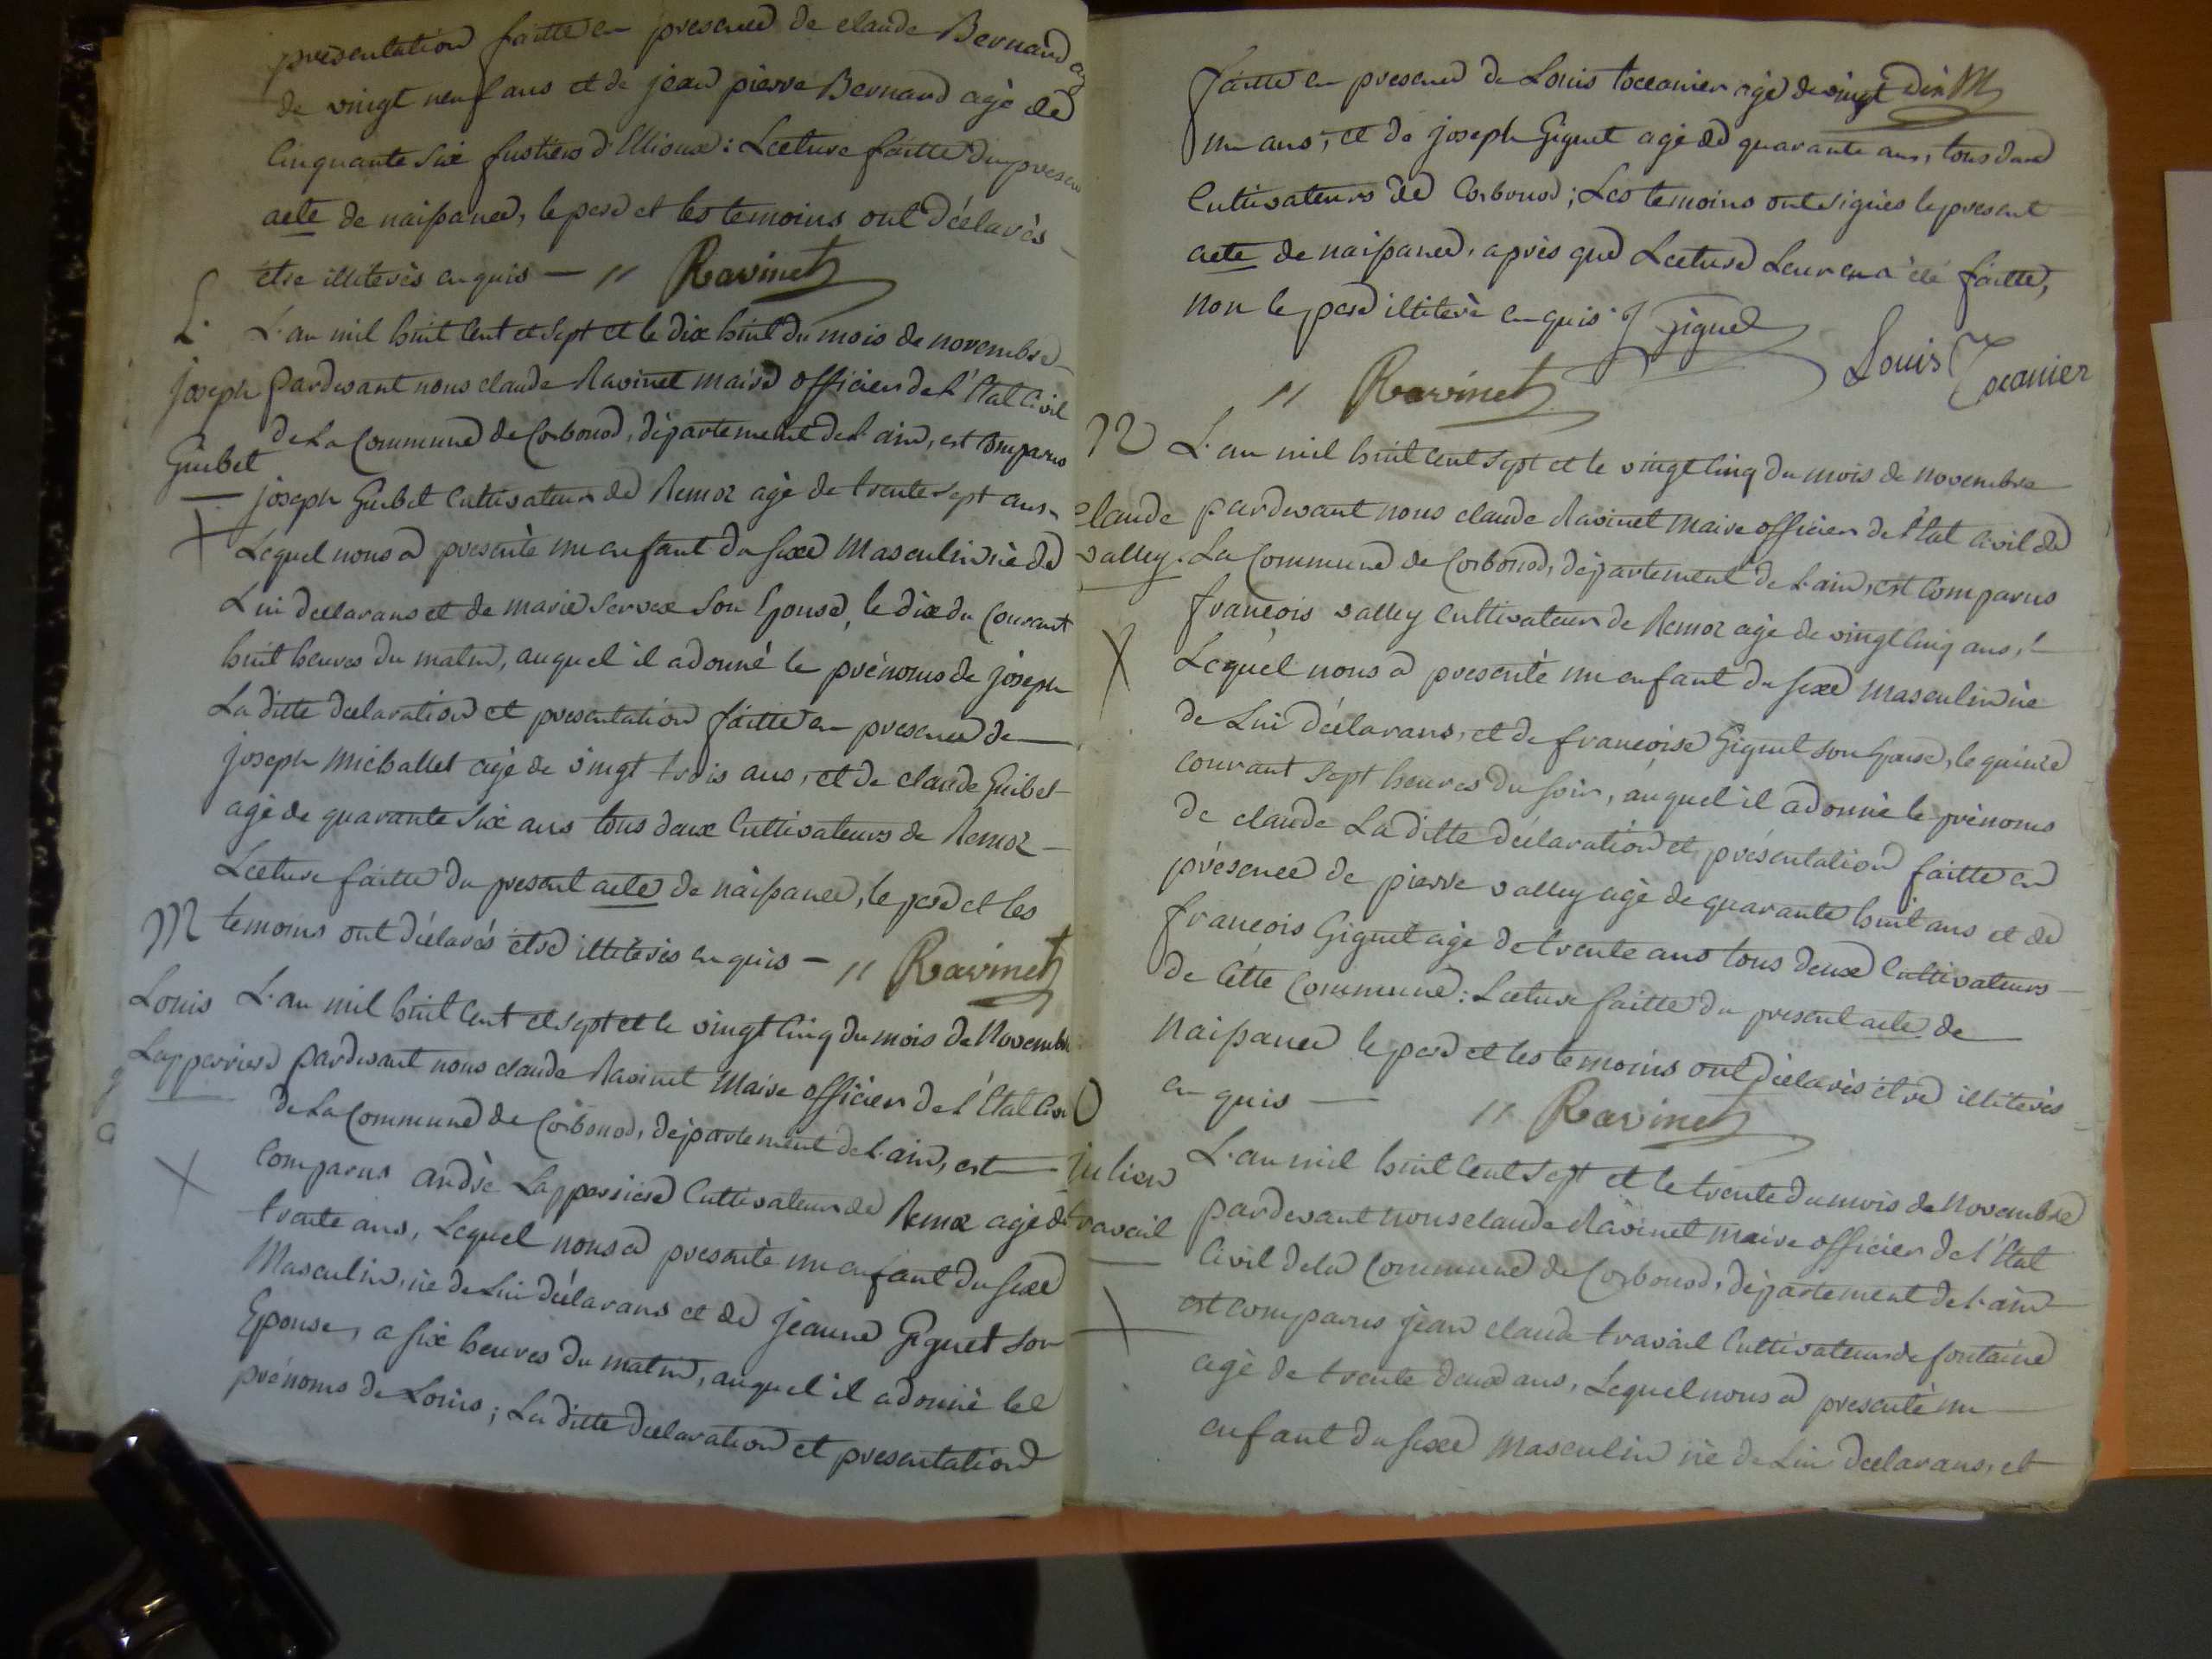 presentation faitte en presence de claude Bernard
de vingt neuf ans et de jean pierre Bernard agé de
Cinquante Six fustiers d'Ilioux : Lecture faitte du presen
acte de naissance, le pere et les temoins ont déclarés
être illiterés enquis — " Ravinet
L. L'an mil huit Cent et Sept et le dix huit du mois de novembre
joseph pardevant nous claude Ravinet maire officier de l'Etat Civil
de La Commune de Corbonod, département de l'ain, est Comparus
Guibet
joseph Guibet Cultivateur de Remoz agé de trente sept ans
Lequel nous a presenté un enfant du sexe Masculin né de
Lui declarans et de marie Servex Son Epouse, le dix du Courant
huit heures du matin, auquel il a donné le prénoms de joseph
La ditte declaration et presentation faitte en presence de
joseph michallet agé de vingt trois ans, et de claude Guibet
agé de quarante Six ans tous deux Cultivateurs de Remoz
Lecture faitte du present acte de naissance, le pere et les
M temoins ont déclarés etre illiterés enquis — " Ravinet
Louis L'an mil huit Cent et sept et le vingt Cinq du mois de Novembre
Lapperriere pardevant nous claude Ravinet Maire officier de l'Etat Civi
de La Commune de Corbonod, département de l'ain, est
Comparus andré Lapperriere Cultivateur de Remoz agé de
trente ans, Lequel nous a presenté un enfant du sexe
Masculin, né de Lui déclarans et de jeanne Giguet Son
Epouse, a Six heures du matin, auquel il a donné le
prénoms de Louis ; La ditte declaration et presentation
faitte en presence de Louis tocanier agé de vingt dix M
un ans, et de joseph Giguet agé de quarante ans, tous deux
Cultivateurs de Corbonod ; Les temoins ont signés le present
acte de naissance, après que Lecture Leur en a été faitte,
non le pere illiteré enquis J Giguet
Louis Tocanier
" Ravinet
N L'an mil huit Cent Sept et le vingt Cinq du mois de novembre
claude pardevant nous claude Ravinet maire officier de l'Etat Civil de
valley. La Commune de Corbonod, département de l'ain, est Comparus
françois valley Cultivateur de Remoz agé de vingt Cinq ans,
Lequel nous a presenté un enfant du sexe masculin né
de Lui déclarans, et de françoise Giguet son Epouse, le quinze
courant Sept heures du Soir, auquel il a donné le prénoms
de claude La ditte déclaration et présentation faitte en
présence de pierre valley agé de quarante huit ans et de
françois Giguet agé de trente ans tous deux Cultivateurs
de Cétte Commune : Lecture faitte du present acte de
naissance le pere et les temoins ont déclarés etre illiterés
enquis — " Ravinet
O
L'an mil huit Cent Sept et le trente du mois de Novembre
julien
pardevant nous claude Ravinet maire officier de l'Etat
travail
Civil de la Commune de Corbonod, département de l'ain
est comparus jean claude travail Cultivateur de fontaine
agé de trente deux ans, Lequel nous a presenté un
enfant du sexe masculin né de Lui declarans, et